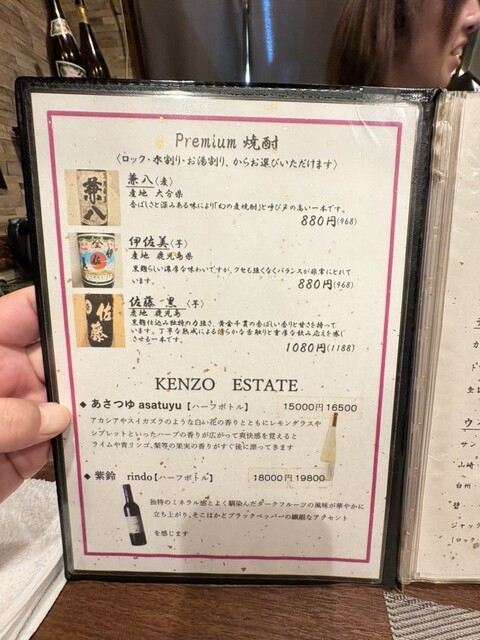 Premium 焼酎
〈ロック・水割り・お湯割り、からお選びいただけます〉
兼八
兼八(麦)
産地 大分県
香ばしさと深みある味により「幻の麦焼酎」と呼び声の高い一本です。
880円(968)
伊佐美(芋)
産地 鹿児島県
黒麹らしい濃厚な味わいですが、クセも強くなくバランスが非常にとれて
います。
880円(968)
佐藤
佐藤 黒 (芋)
産地 鹿児島
黒麹仕込み独特の力強さ、黄金千貫の香ばしい香りと甘さを持って
います。丁寧な熟成による滑らかな舌触りと重厚な飲み応えを感じ
させる一本です。
1080円(1188)
KENZO ESTATE
◆ あさつゆ asatuyu【ハーフボトル】 15000円 16500
アカシアやスイカズラのような白い花の香りとともにレモングラスや
シブレットといったハーブの香りが広がって爽快感を覚えると
ライムや青リンゴ、梨等の果実の香りがすぐ後に漂ってきます
◆ 紫鈴 rindo【ハーフボトル】 18000円 19800
独特のミネラル感とよく馴染んだダークフルーツの風味が華やかに
立ち上がり、そこはかとブラックペッパーの繊細なアクセント
を感じます
ウ
サン
山崎
白州
替
ジャッ
[ロック